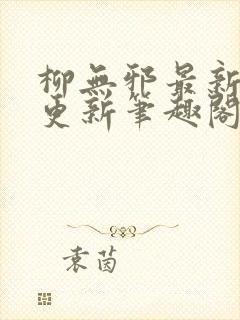 柳無邪最新
更新筆趣閣
袁茵